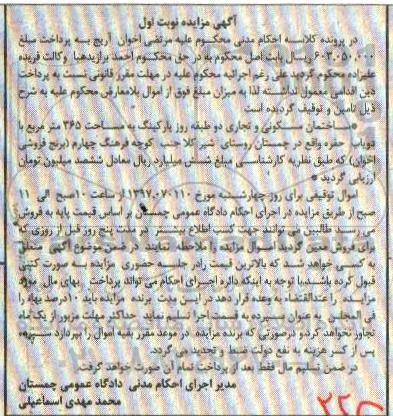 آگهی مزایده نوبت اول
در پرونده کلاسه احکام مدنی محکوم علیه مرتضی اخوان آریج به پرداخت مبلغ
۶۰۳.۰۵۰.۰۰۰ ریال بابت اصل محکوم به در حق محکوم احمد برازیدهیا وکالت فریده
علیزاده محکوم گردید علی رغم اجرائیه محکوم علیه در مهلت مقرر قانونی نسبت به پرداخت
دین اقدامی معمول نداشته لذا به میزان مبلغ فوق از اموال بلامعارض محکوم علیه به شرح
ذیل تامین و توقیف گردیده است
ساختمان مسکونی و تجاری دو طبقه روز پارکینگ به مساحت ۳۶۵ متر مربع با
دوباب حفره واقع در چمستان روستای شیر کلا جنب کوچه فرهنگ چهارم (بریج فروشی
اخوان) که طبق نظریه کارشناسی مبلغ شش میلیارد ریال معادل ششصد میلیون تومان
ارزیابی گردید
اموال توقیفی برای روز چهارشنبه مورخ ۱۳۹۷۰۷۰۱۱۰ از ساعت ۱۰ صبح الی ۱۱
صبح از طریق مزایده در اجرای احکام دادگاه عمومی چمستان بر اساس قیمت پایه به فروش
می رسد طالبین می توانند جهت کسب اطلاع بیشتر در مدت پنج روز قبل از روزی که
برای فروش معین گردید اموال مزایده را ملاحظه نمایند در ضمن موضوع آگهی متعلق
به کسی خواهد شد که بالاترین قیمت را در جلسه حضوری مزایده به صورت کتبی
قبول کرده باشد با توجه به اینکه دایره اجرای احکام می تواند پرداخت بهای مال مورد
مزایده را عندالاقتضاء به وعده قرار دهد در این مدت برنده مزایده باید ۱۰ درصد بها را
فی المجلس به عنوان سپرده به قسمت اجرا تسلیم نماید حداکثر مهلت مزبور از یک ماه
تجاوز نخواهد کرد و درصورتی که برنده مزایده در موعد مقرر بقیه اموال را نپردازد سپرده
پس از کسر هزینه به نفع دولت ضبط و تجدید می گردد
در ضمن تسلیم مال فقط بعد از پرداخت تمام آن صورت خواهد گرفت
مدیر اجرای احکام مدنی دادگاه عمومی چمستان
محمد مهدی اسماعیلی
۲۲۵